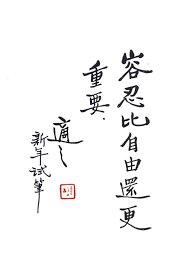 容忍比自由還更
重要．
適之
新年試筆